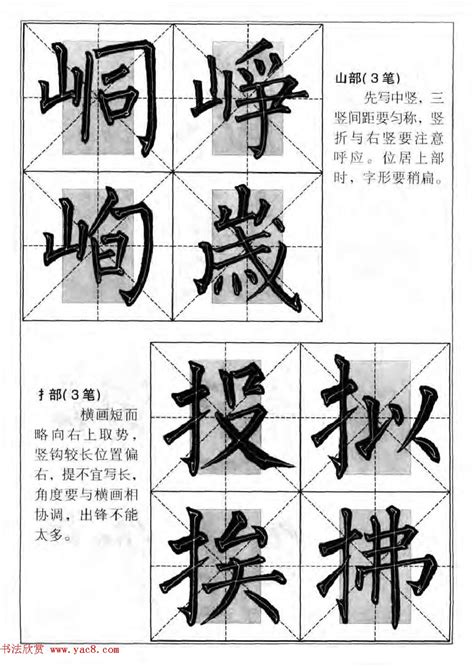 峒 峥
山部(3笔)
先写中竖，三
竖间距要匀称，竖
折与右竖要注意
呼应。位居上部
时，字形要稍扁。
峋 崴
投 拟
扌部(3笔)
横画短而
略向右上取势，
竖钩较长位置偏
右，提不宜写长，
角度要与横画相
协调，出锋不能
太多。
挨 拂
书法欣赏 www.yac8.com